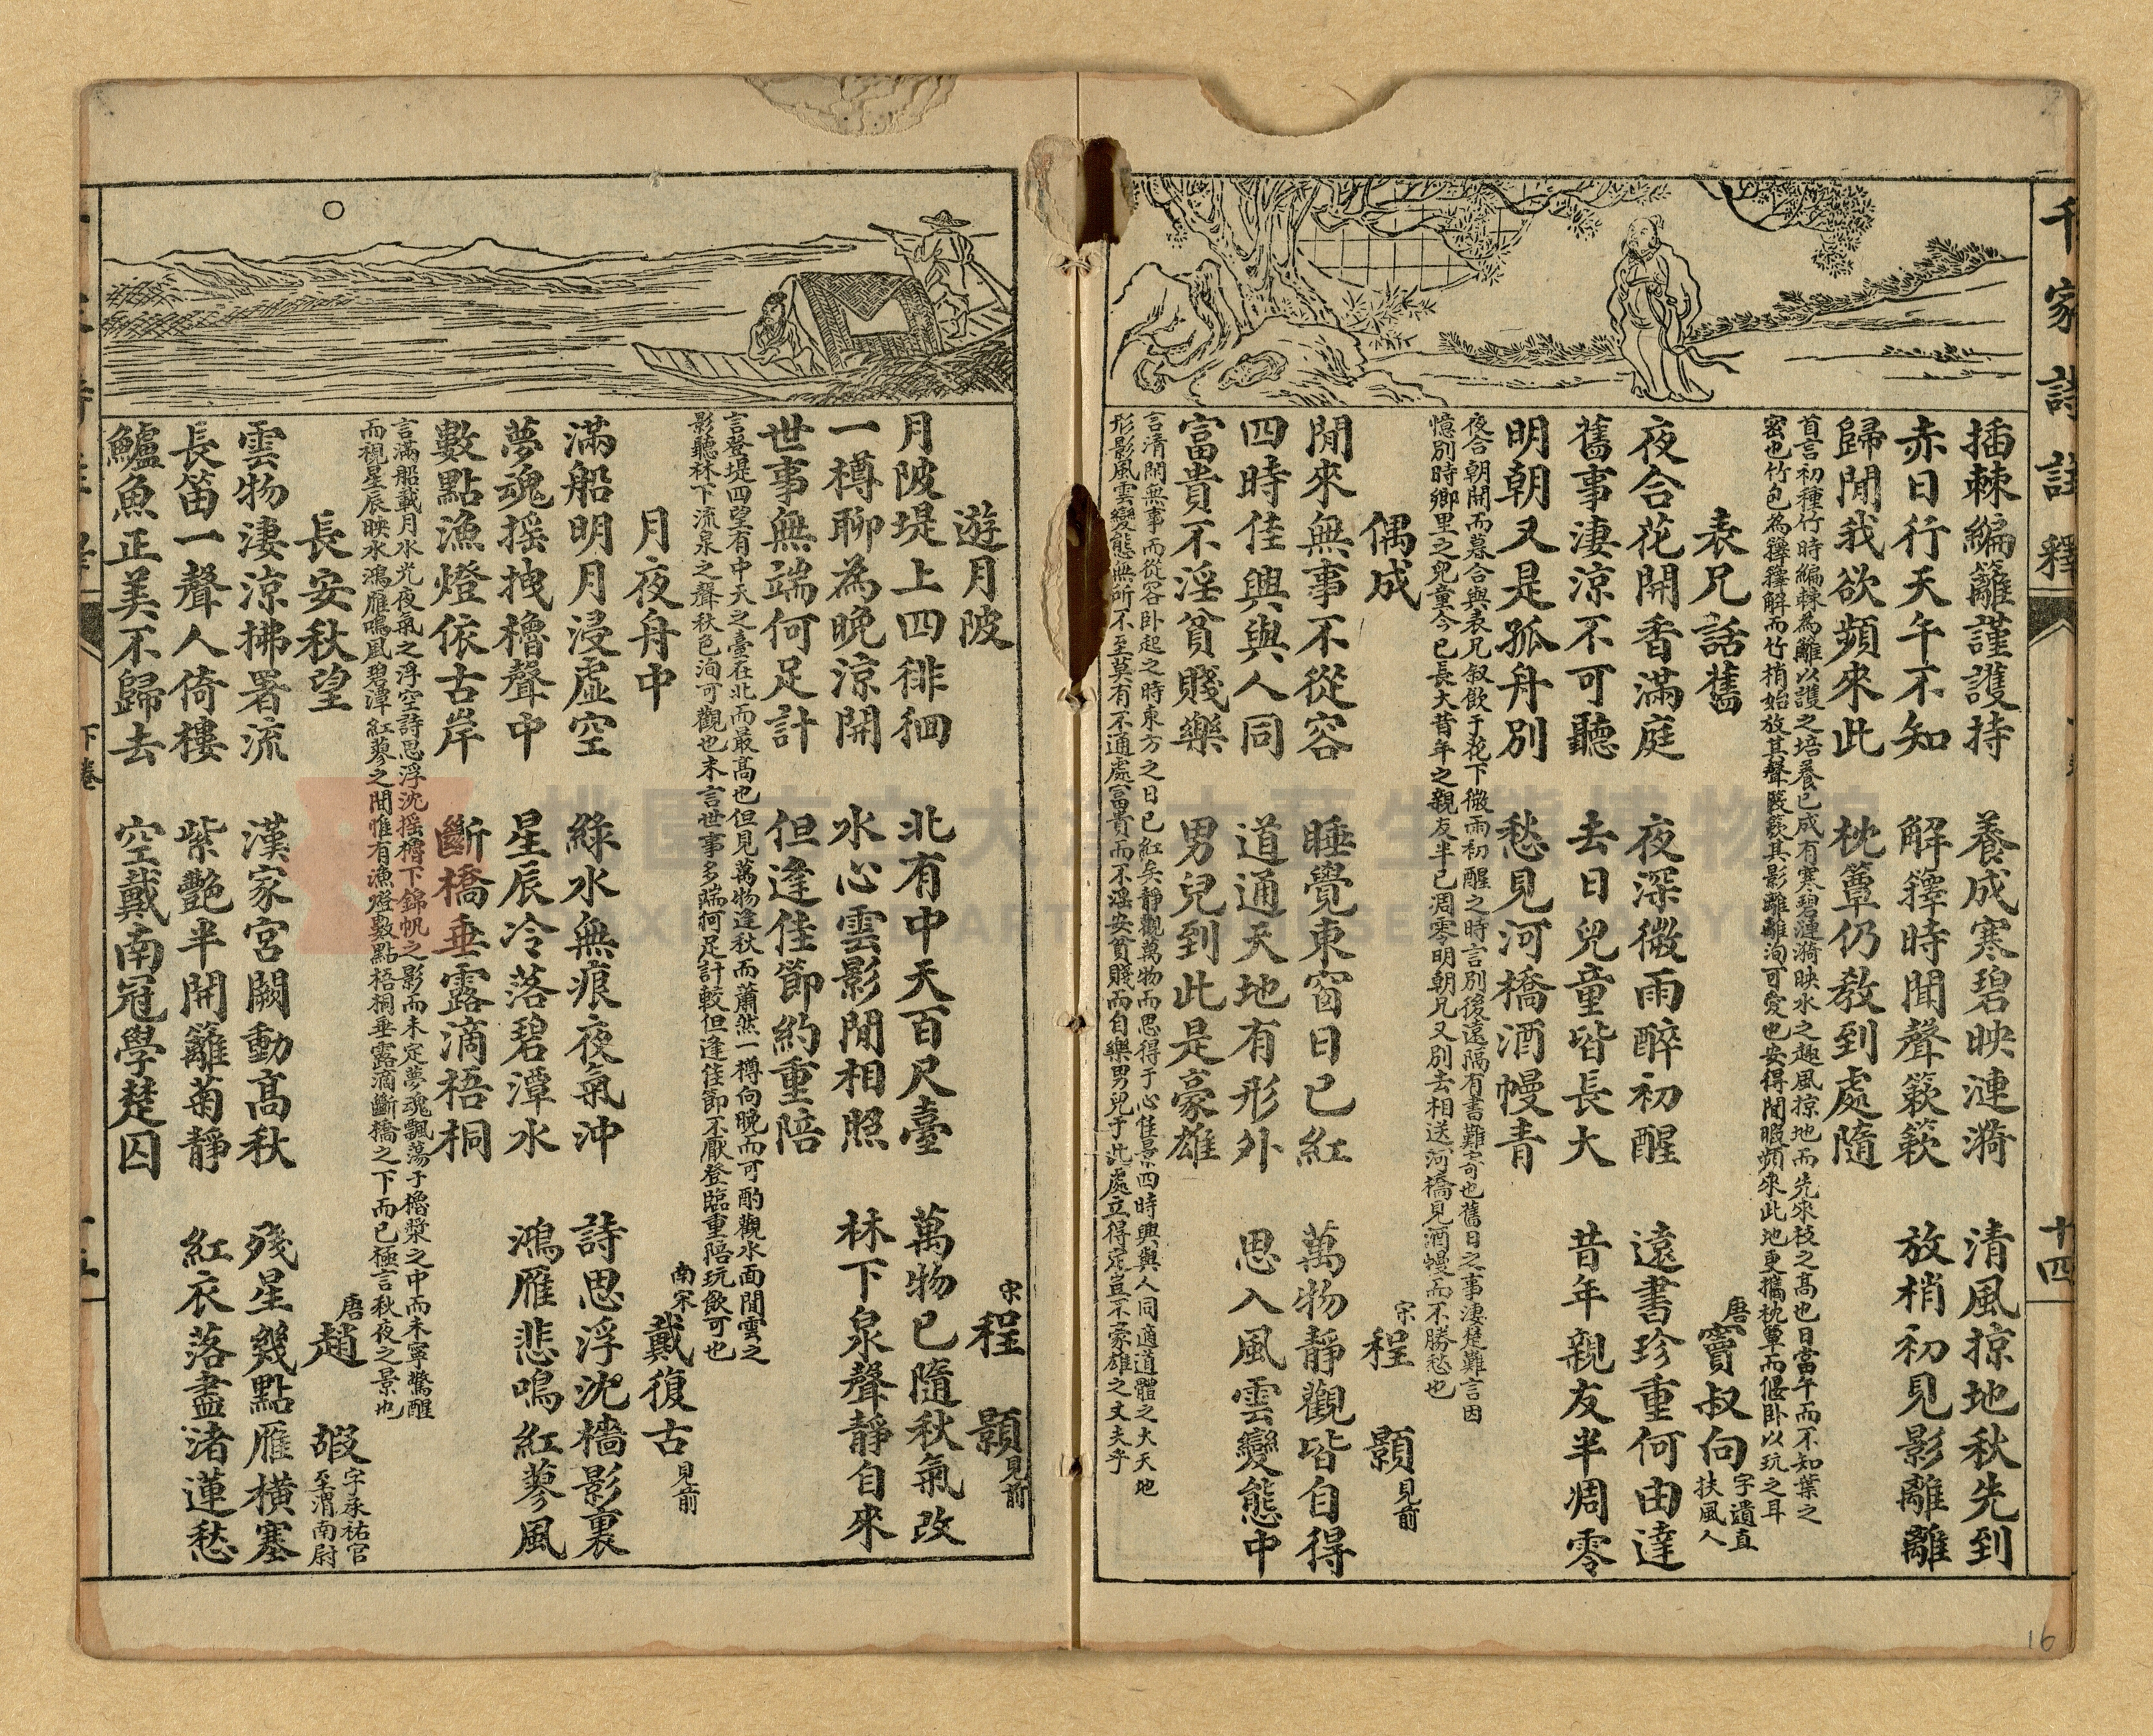 千家詩註釋
十四
插棘編籬謹護持　養成寒碧映漣漪　清風掠地秋先到
赤日行天午不知　解籜時聞聲簌簌　放梢初見影離離
歸閒我欲頻來此　枕簟仍教到處隨
首言初種竹時編棘為籬以護之培養已成有寒碧漣漪映水之趣風掠地而先來枝之高也日當午而不知葉之
密也竹包為籜籜解而竹梢始放其聲簌簌其影離離洵可愛也安得閒暇頻來此地更攜枕簟而偃卧以玩之耳
表兄話舊　唐　竇叔向　字遺直扶風人
夜合花開香滿庭　夜深微雨醉初醒　遠書珍重何由達
舊事淒涼不可聽　去日兒童皆長大　昔年親友半凋零
明朝又是孤舟別　愁見河橋酒幔青
夜合朝開而暮合與表兄叙飲于花下微雨初醒之時言別後遠隔有書難寄也舊日之事淒楚難言因
憶別時鄉里之兒童今已長大昔年之親友半已凋零明朝兄又別去相送河橋見酒幔而不勝愁也
偶成　宋　程顥　見前
閒來無事不從容　睡覺東窗日已紅　萬物靜觀皆自得
四時佳興與人同　道通天地有形外　思入風雲變態中
富貴不淫貧賤樂　男兒到此是豪雄
言清閒無事而從容卧起之時東方之日已紅矣靜觀萬物而思得于心佳景四時興與人同適道體之大天地
形影風雲變態無所不至莫有不通處富貴而不淫安貧賤而自樂男兒于此處立得定豈不豪雄之丈夫乎
遊月陂　宋　程顥　見前
月陂堤上四徘徊　北有中天百尺臺　萬物已隨秋氣改
一樽聊為晚涼開　水心雲影閒相照　林下泉聲靜自來
世事無端何足計　但逢佳節約重陪
言登堤四望有中天之臺在北而最高也但見萬物逢秋而蕭然一樽向晚而可酌觀水面閒雲之
影聽林下流泉之聲秋色洵可觀也末言世事多端何足計較但逢佳節不厭登臨重陪玩飲可也
月夜舟中　南宋　戴復古　見前
滿船明月浸虛空　綠水無痕夜氣沖　詩思浮沈檣影裏
夢魂搖拽櫓聲中　星辰冷落碧潭水　鴻雁悲鳴紅蓼風
數點漁燈依古岸　斷橋垂露滴梧桐
言滿船載月水光夜氣之浮空詩思浮沈搖檣下錦帆之影而未定夢魂飄蕩于櫓槳之中而未寧驚醒
而視星辰映水鴻雁鳴風碧潭紅蓼之間惟有漁燈數點梧桐垂露滴斷橋之下而已極言秋夜之景也
長安秋望　唐　趙嘏　字承祐官至渭南尉
雲物淒涼拂署流　漢家宮闕動高秋　殘星幾點雁橫塞
長笛一聲人倚樓　紫艷半開籬菊靜　紅衣落盡渚蓮愁
鱸魚正美不歸去　空戴南冠學楚囚
下卷
16